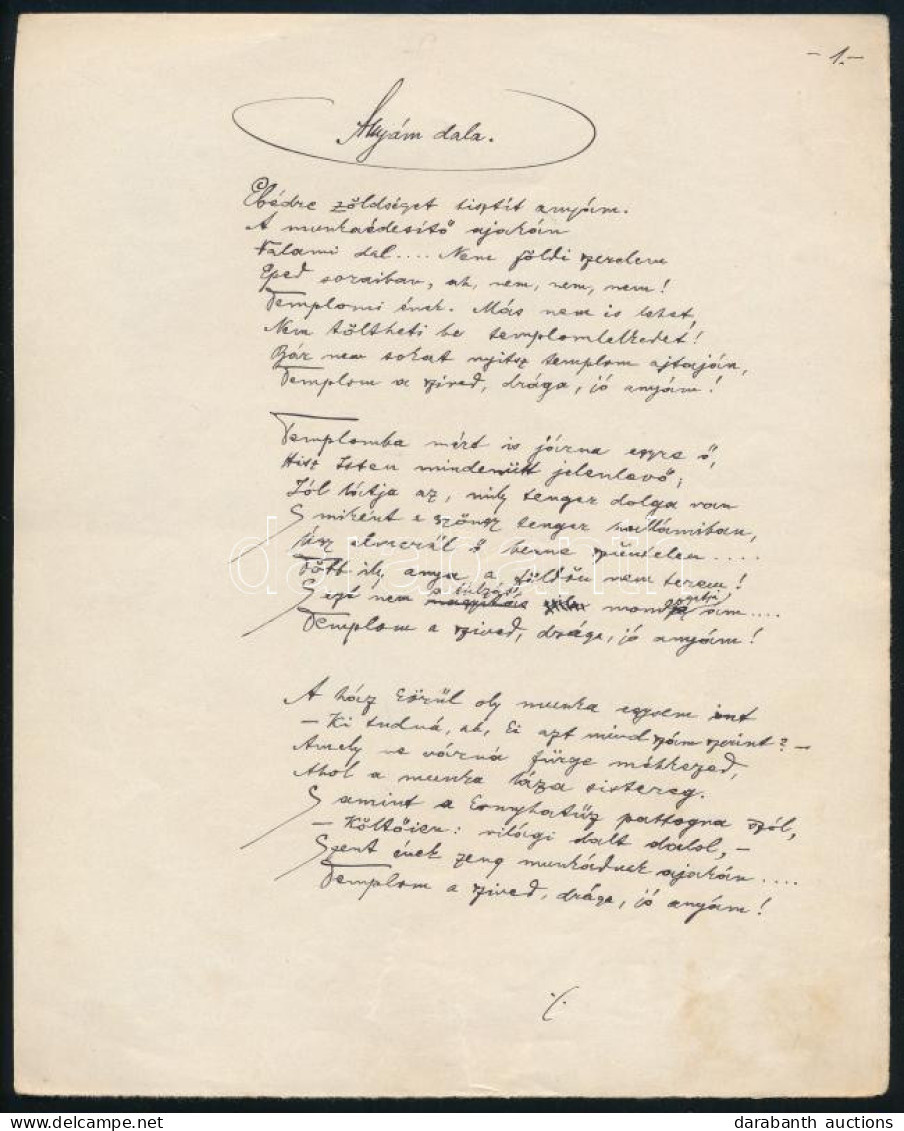 - 1. -
Anyám dala.
Ebédre zöldséget tisztít anyám.
A munkaédesítő ajakán
Valami dal.... Nem földi szerelem
Eped soraiban, ah, nem, nem, nem!
Templomi ének. Más nem is lehet,
Nem töltheti be templomlelkedet!
Bár nem sokat nyitsz templom ajtaján,
Templom a szived, drága, jó anyám!
Templomba mért is járna egyre ő,
Hisz Isten mindenütt jelenlevő;
Jól látja az, mily tenger dolga van
S miként e szörnyü tenger
ő benne szüntelen....
ily anya a földön nem terem!
S ezt nem túlzás, mondja ám....
Templom a szived, drága, jó anyám!
A ház körül oly munka egy sem int
- Ki tudná, ah, ki azt mind szám szerint? -
Amely ne várná fürge méhkezed,
Ahol a munka láza sistereg.
S amint a konyhatűz pattogna szól,
- Költőien: világi dalt dalol, -
Szent ének zeng munkádnak ajakán....
Templom a szived, drága, jó anyám!
./.
darabanth
darabanth auctions